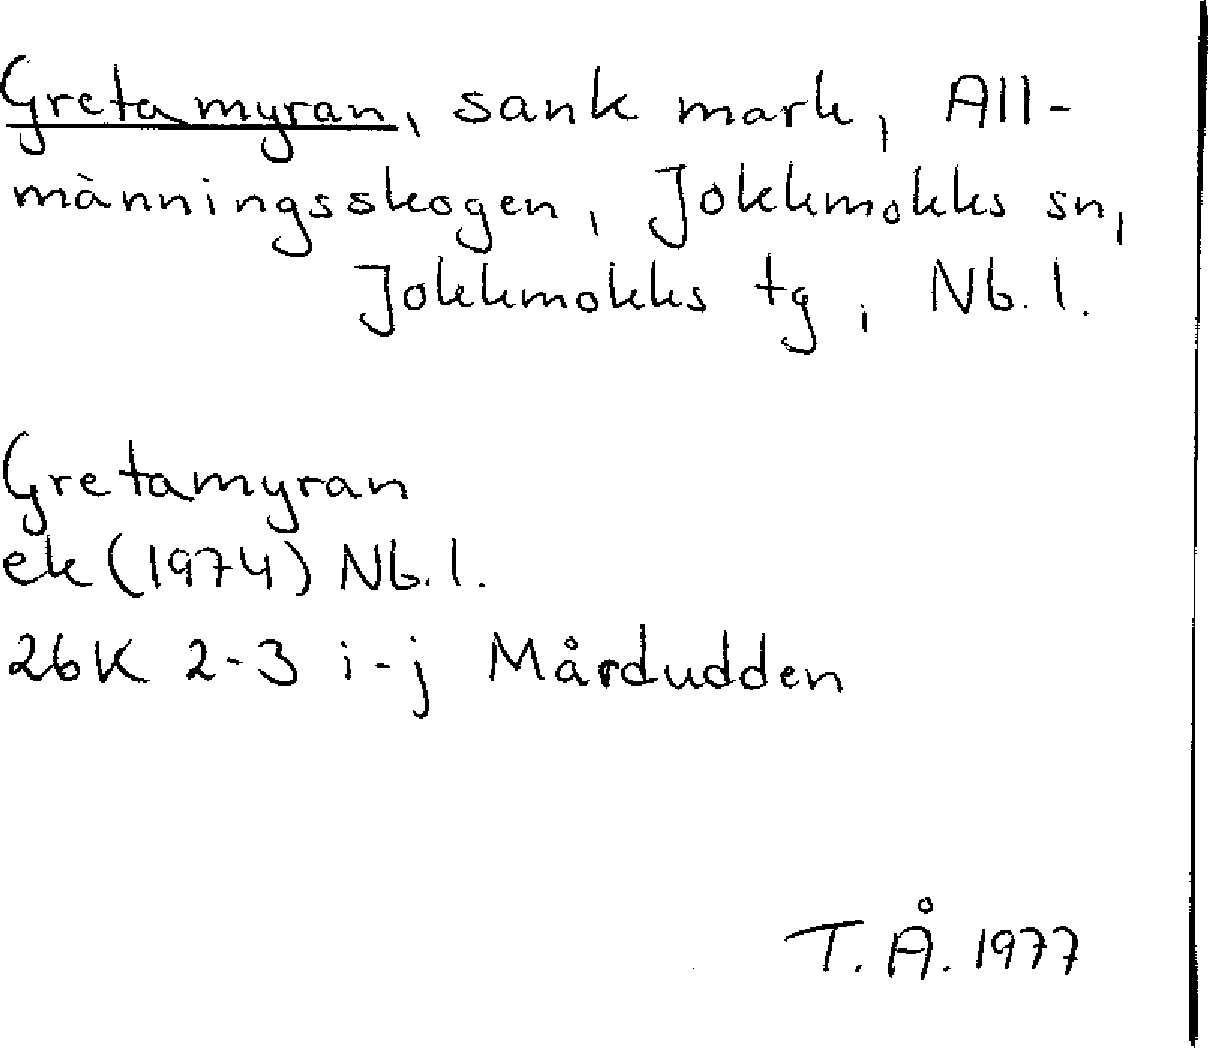 Gretamyran, sank mark, All-
männingsskogen, Jokkmokks sn,
Jokkmokks tg, Nb. l.
Gretamyran
ek (1974) Nb. l.
26K 2-3 i-j Mårdudden
T. Å. 1977